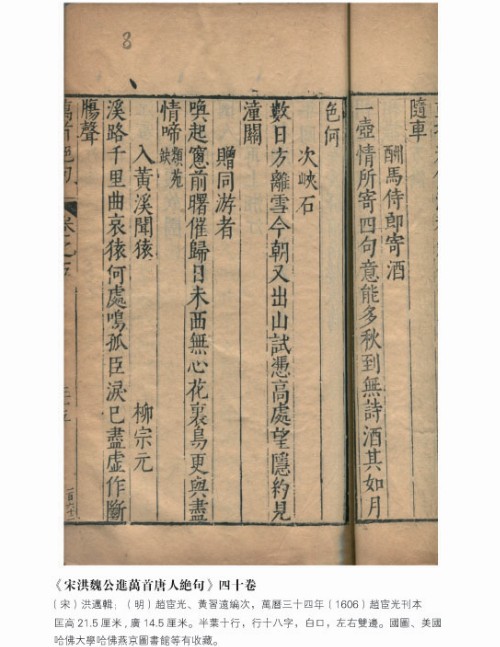 8
隨車
酬馬侍郎寄酒
一壺情所寄四句意能多秋到無詩酒其如月
色何
次峽石
數日方離雪今朝又出山試憑高處望隱約見
潼關
贈同游者
喚起窻前曙催歸日未西無心花裏鳥更與盡
情啼 類苑
入黃溪聞猿 柳宗元
溪路千里曲哀猿何處鳴孤臣淚已盡虛作斷
腸聲
萬首絕句 卷之
《宋洪魏公進萬首唐人絕句》四十卷
（宋）洪邁輯；（明）趙宧光、黃習遠編次，萬曆三十四年（1606）趙宧光刊本
匡高 21.5 厘米，廣 14.5 厘米。半葉十行，行十八字，白口，左右雙邊。國圖、美國
哈佛大學哈佛燕京圖書館等有收藏。